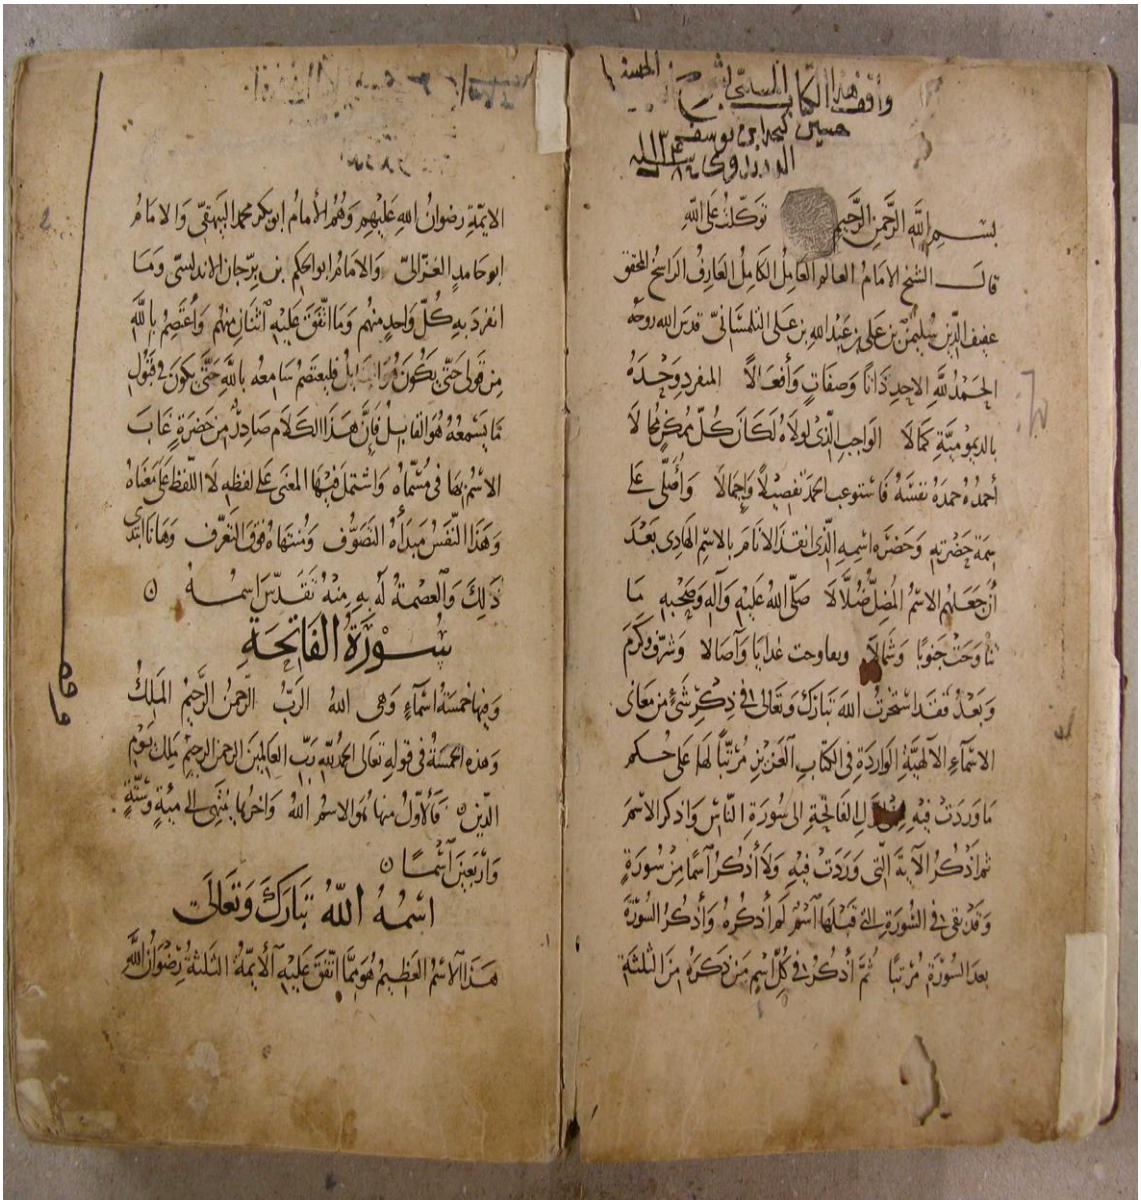 واقف هذا الكتاب المسمى
حسين كتخدا بن يوسف
سنة ١١٣٤
بسم الله الرحمن الرحيم توكلت على الله
قال الشيخ الامام العالم العامل الكامل العارف الراسخ المحقق
عفيف الدين سليمن بن على بن عبد الله بن على التلمسانى قدس الله روحه
الحمد لله الاحد ذاتا وصفات وأفعالا المفرد وحده
بالديمومية كمالا الواجب الذى لولاه لكان كل ممكن محالا
أحمده حمده نفسه فاستوعب الحمد تفصيلا وإجمالا وأصلى على
سمة حضرته وحضرة اسمه الذى انقذ الانام بالاسم الهادى بعد
أن جعلهم الاسم المضل ضلالا صلى الله عليه وآله وصحبه ما
تناوحت جنوبا وشمالا وتفاوحت غدايا وآصالا وشرف وكرم
وبعد فقد استخرت الله تبارك وتعالى فى ذكر شئ من معانى
الاسمآء الالهية الواردة فى الكتاب العزيز مرتبا لها على حكم
ما وردت فيه من اول الفاتحة الى سورة الناس واذكر الاسم
ثم اذكر الآية التى وردت فيه ولا أذكر آسما من سورة
وقد بقى فى السورة التى قبلها آسم لم أذكره وأذكر السورة
بعد السورة مرتبا ثم أذكر فى كل اسم من ذكره من الثلثة
الايمة رضوان الله عليهم وهم الأمام ابو بكر محمد البيهقى والامام
ابو حامد الغزالى والامام ابو الحكم بن برجان الاندلسى وما
انفرد به كل واحد منهم وما اتفق عليه آثنان منهم وأعتصم بالله
من قولى حتى يكون قايل فليعتصم سامعه بالله حتى يكون فى قبول
ما يسمعه هو القايل فإن هذا الكلام صادر من حضرة غاب
الاسم بها فى مسماه واشتمل فيها المعنى على لفظه لا اللفظ على معناه
وهذا النفس مبدأه التصوف ومنتهاه فوق التعرف وها نا ابتدى
ذلك والعصمة له به منه تقدس اسمه
سورة الفاتحة
وفيها خمسة اسمآء وهى الله الرب الرحمن الرحيم الملك
وهذه الخمسة فى قوله تعالى الحمد لله رب العالمين الرحمن الرحيم ملك يوم
الدين فألأول منها هو الاسم الله وآخرها ينتهى الى مية وستة
واربعين آسما
اسمه الله تبارك وتعالى
هذا آلاسم العظيم هو مما اتفق عليه آلأيمة الثلثة رضوان الله
وقف